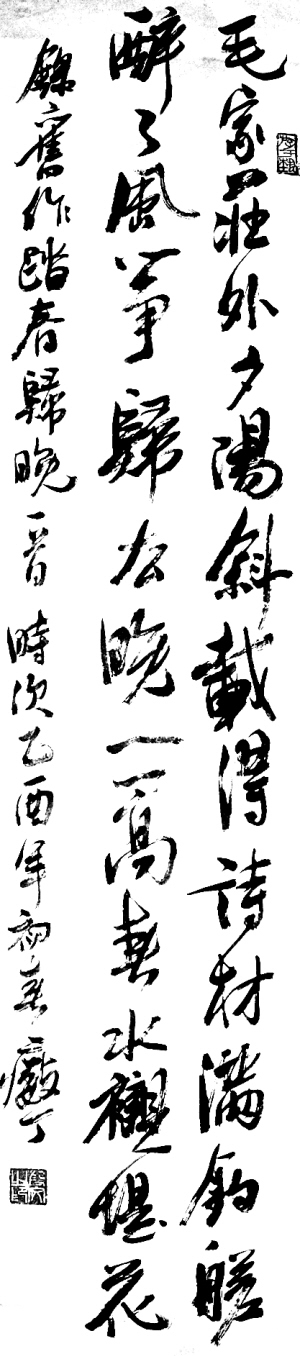 毛家莊外夕陽斜載得詩材滿釣艖
醉了風箏歸去晚一篙春水襯堤花
錄舊作踏春歸晚一首 時次乙酉年初春 丁